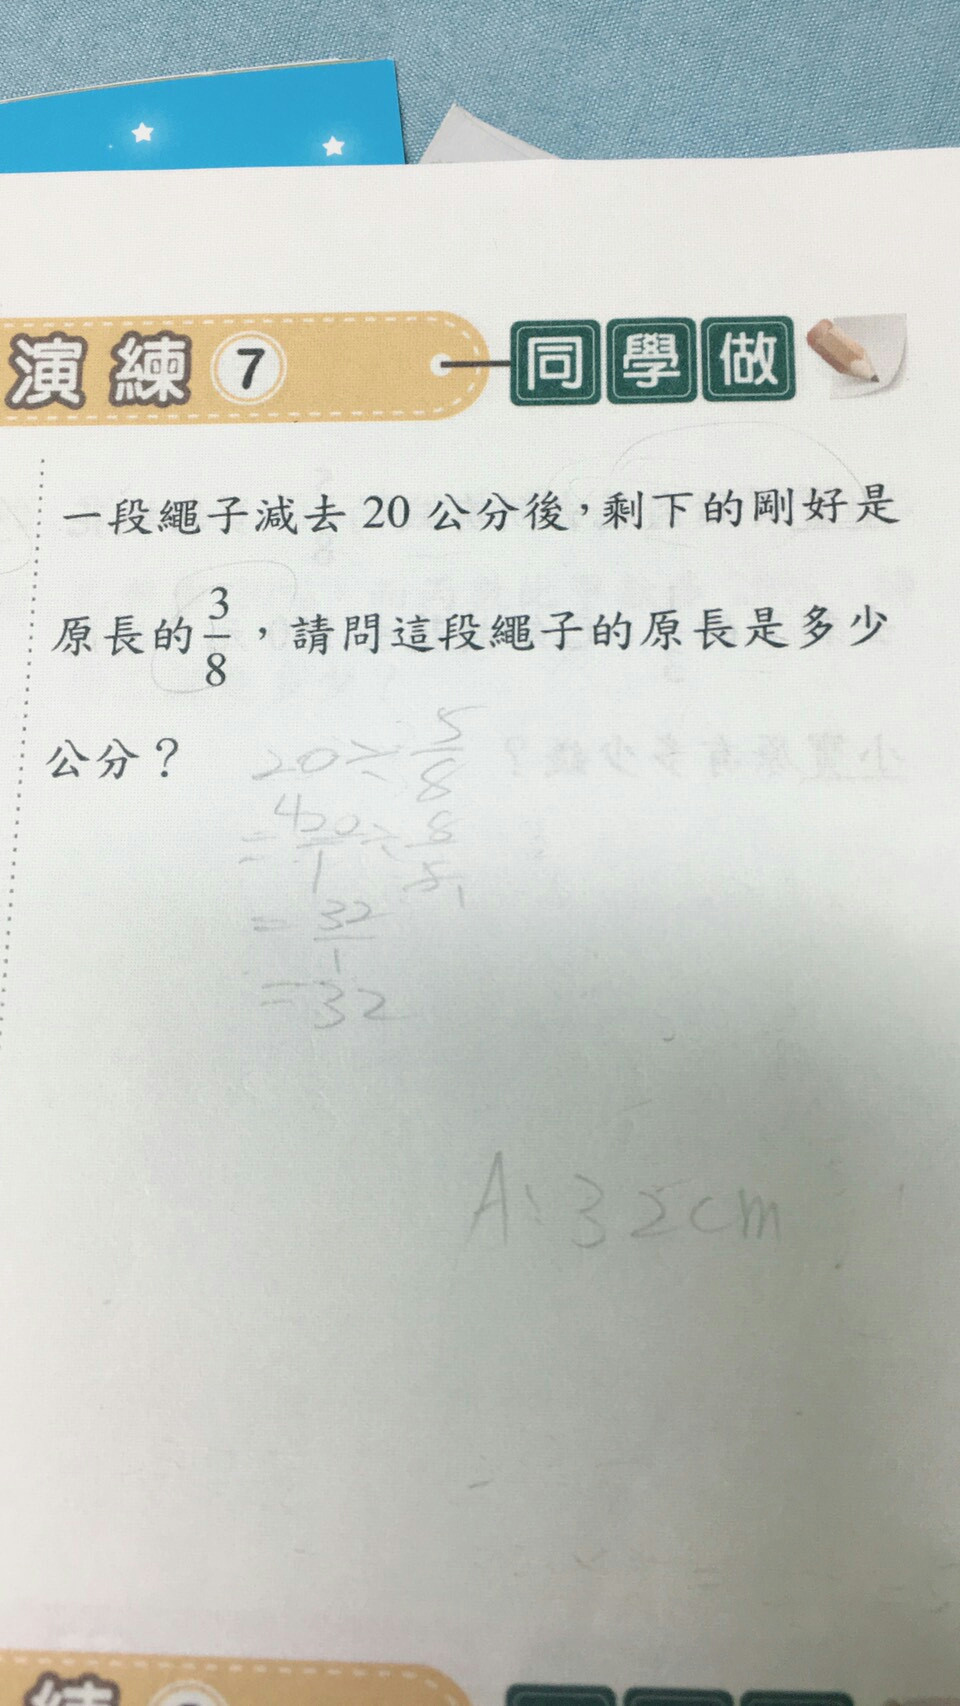 演練 7 同學做
一段繩子減去 20 公分後，剩下的剛好是
原長的 3/8，請問這段繩子的原長是多少
公分？
20÷5/8
=4 20/1÷8/5 1
=32/1
=32
A:32cm
練